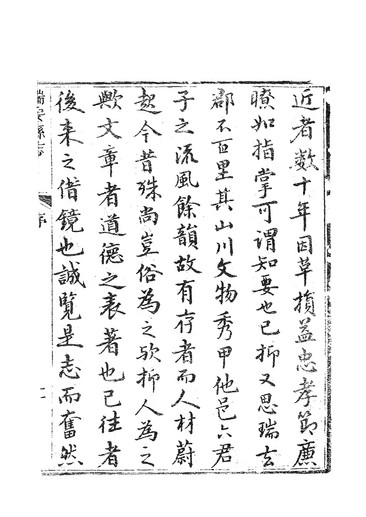 近者數十年因革損益忠孝節廉
瞭如指掌可謂知要也已抑又思瑞去
郡不百里其山川文物秀甲他邑六君
子之流風餘韻故有存者而人材蔚
起今昔殊尚豈俗為之歟抑人為之
歟文章者道德之表著也已往者
後来之借鏡也誠覽是志而奮然
瑞安縣志
序